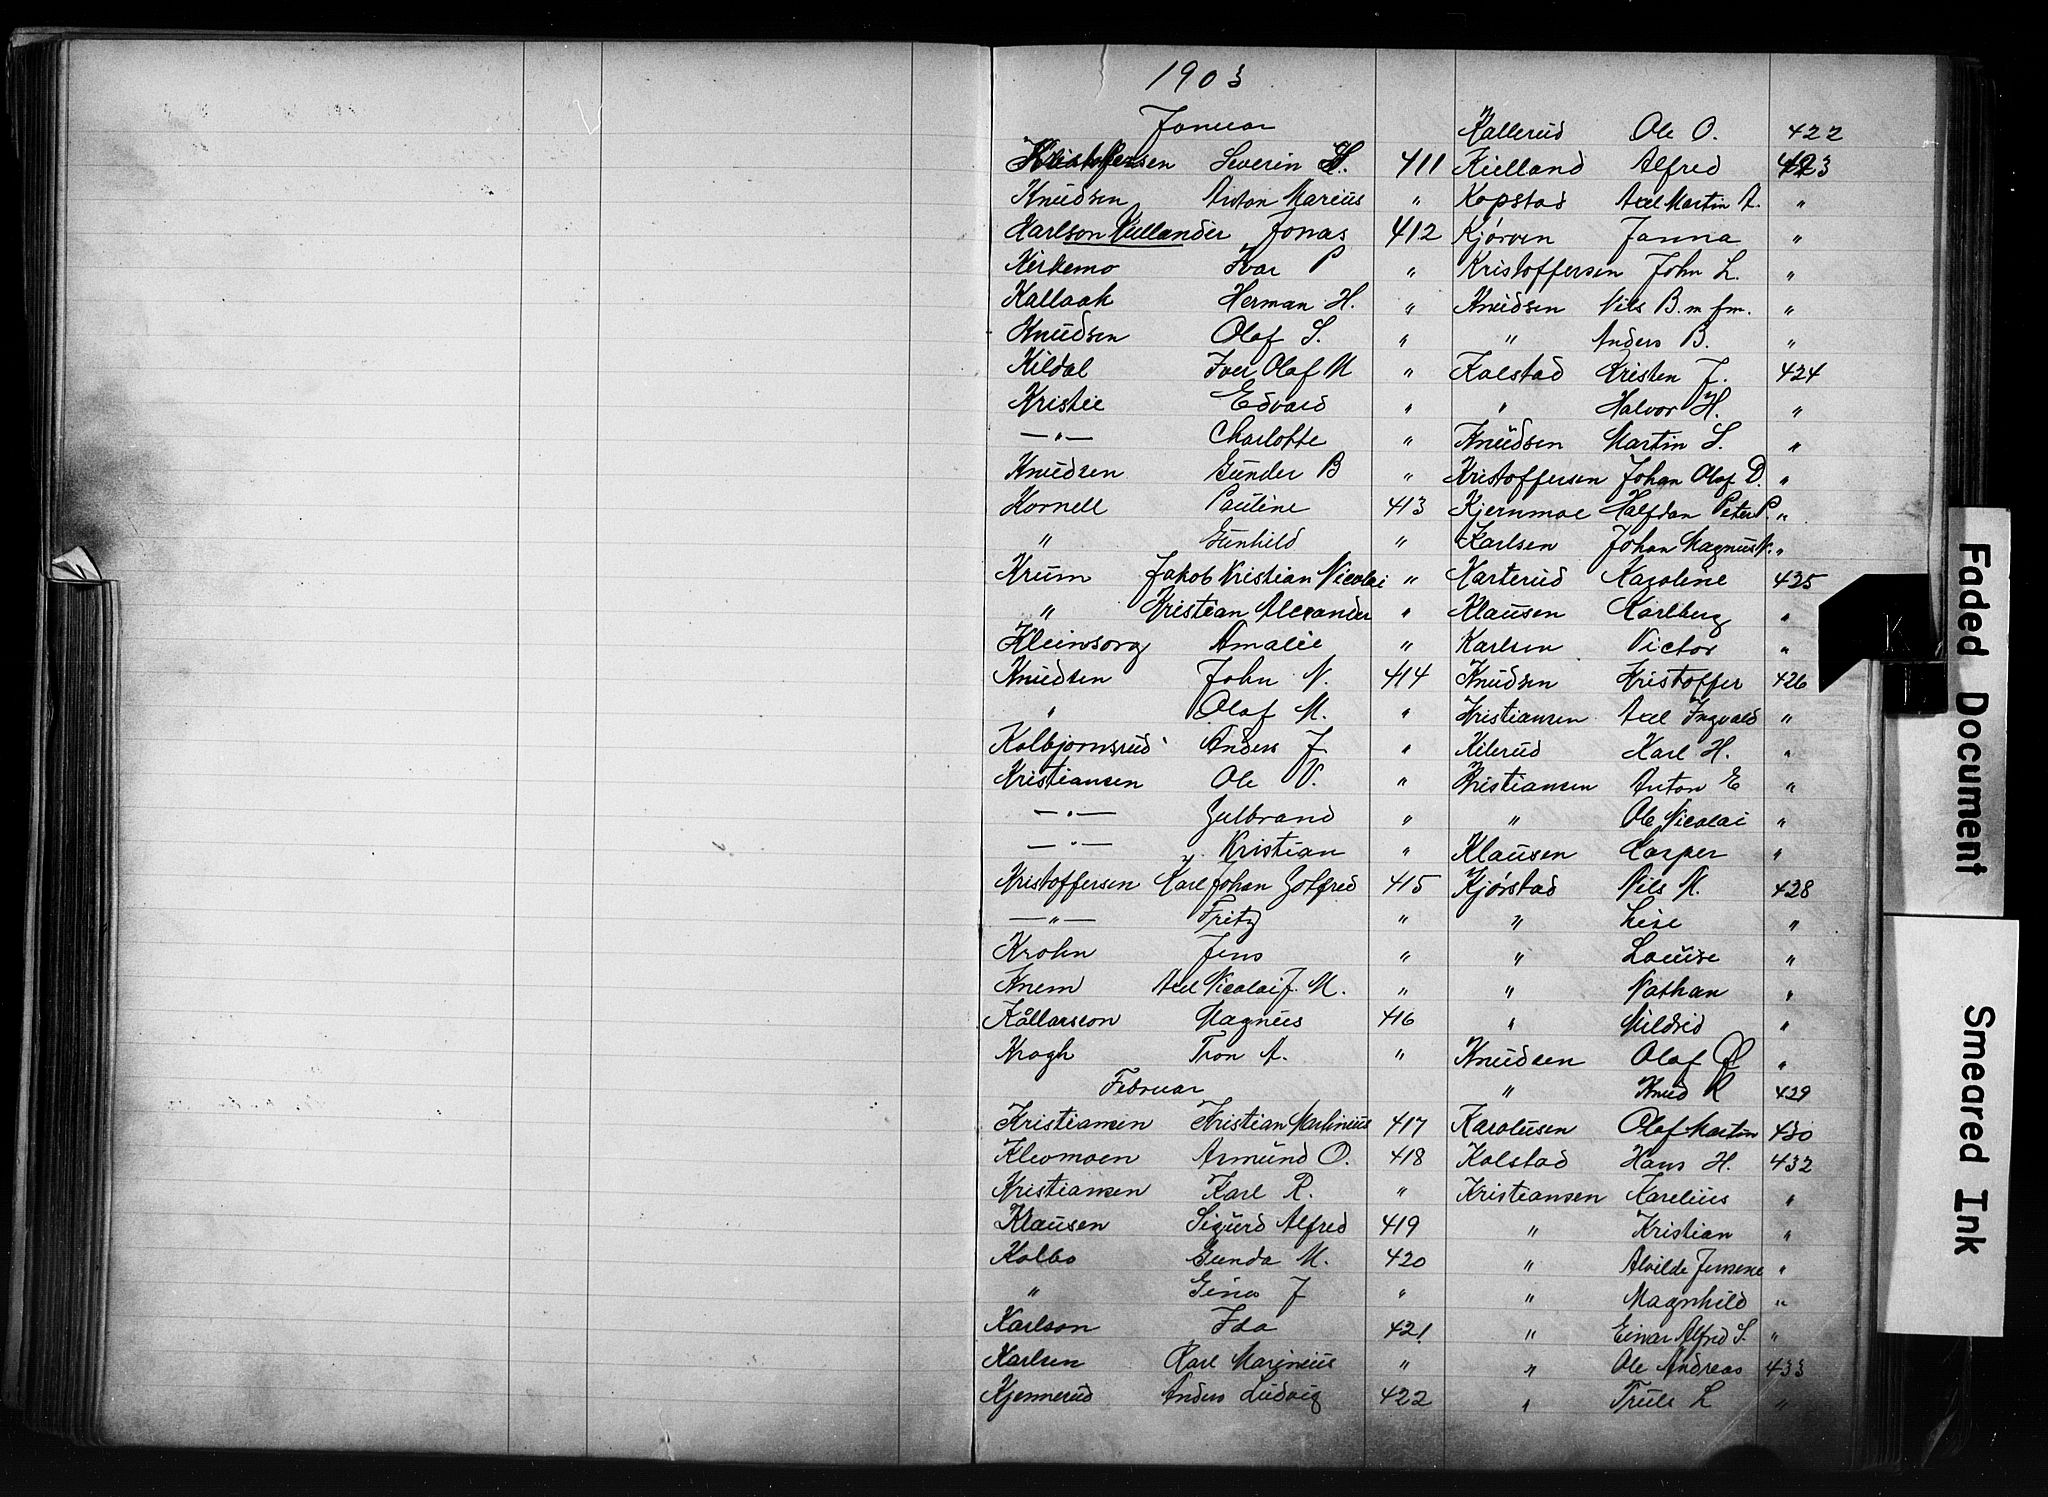 1903
Januar
Kristoffersen Severin H. 411
Knudsen Anton Marius "
Karlson Kullander Jonas 412
Kirkemo Ivar P "
Kallaak Herman H. "
Knudsen Olaf S. "
Kildal Iver Olaf M "
Kristie Edvard "
—"— Charlotte "
Knudsen Gunder B "
Kornell Pauline 413
" Gunhild "
Krum Jakob Kristian Nicolai "
" Kristian Alexander "
Kleinsorg Amalie "
Knudsen John N. 414
" Olaf M. "
Kolbjornsrud Anders J. "
Kristiansen Ole V. "
—"— Gulbrand "
—"— Kristian "
Kristoffersen Karl Johan Gotfred 415
—"— Fritz "
Krohn Jens "
Knem Axel Nicolai J. M. "
Kållarsson Magnus 416
Krogh Tron A. "
Februar
Kristiansen Kristian Martinius 417
Klevmoen Asmund O. 418
Kristiansen Karl R. "
Klausen Sigurd Alfred 419
Kolbo Gunda M. 420
" Gina J "
Karlson Ida 421
Karlsen Karl Marinius "
Kjennerud Anders Ludvig 422
Kallerud Ole O. 422
Kielland Alfred 423
Kopstad Axel Martin A. "
Kjørven Janna "
Kristoffersen John L. "
Knudsen Nils B. m fm. "
" Anders B. "
Kolstad Kristen J. 424
" Halvor H. "
Knudsen Martin S. "
Kristoffersen Johan Olaf D. "
Kjernmoe Halfdan Peter P. "
Karlsen Johan Magnus N. "
Karterud Karoline 425
Klausen Karlberg "
Karlsen Victor "
Knudsen Kristoffer 426
Kristiansen Axel Ingvald "
Kilerud Karl H. "
Kristiansen Anton E "
" Ole Nicolai "
Klausen Casper "
Kjørstad Nils M. 428
" Lise "
" Louise "
" Nathan "
" Mildrid "
Knudsen Olaf "
" Knud K 429
Karolusen Olaf Martin 430
Kolstad Hans H. 432
Kristiansen Karelius "
" Kristian "
" Alvilde Jensine "
" Magnhild "
" Einar Alfred S. "
" Ole Andreas 433
" Truls L "
K
Faded Document
Smeared Ink